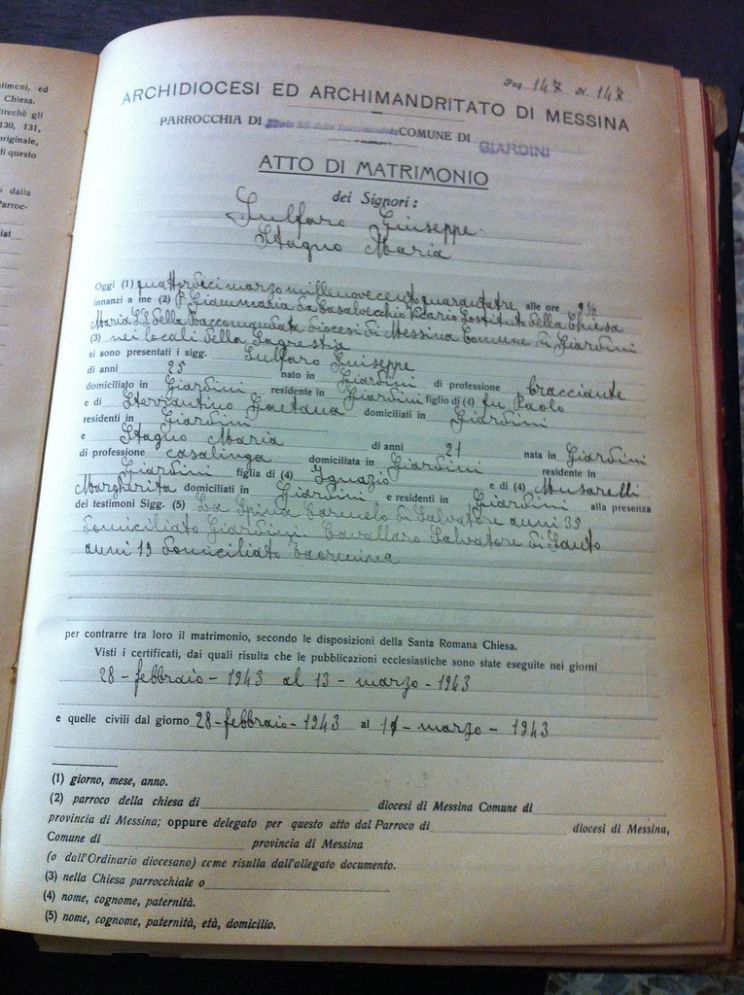 timeni, ed
Chiesa.
trechè gli
130, 131,
originale,
di questo
dalla
Parroc-
Pag. 147 N. 147
ARCHIDIOCESI ED ARCHIMANDRITATO DI MESSINA
PARROCCHIA DI Maria SS. della Raccomandata COMUNE DI GIARDINI
ATTO DI MATRIMONIO
dei Signori:
Sulfaro Giuseppe
Stagno Maria
Oggi (1) quattordici marzo millenovecentoquarantatre alle ore 9½
innanzi a me (2) P. Gianmaria da Casalvecchio Vicario Sostituto della Chiesa
Maria S.S. della Raccomandata Diocesi di Messina Comune di Giardini
(3) nei locali della Sagrestia
si sono presentati i sigg. Sulfaro Giuseppe
di anni 25 nato in Giardini di professione bracciante
domiciliato in Giardini residente in Giardini figlio di (4) fu Paolo
e di Sterrantino Gaetana domiciliati in Giardini
residenti in Giardini
e Stagno Maria di anni 21 nata in Giardini
di professione casalinga domiciliata in Giardini residente in
Giardini figlia di (4) Ignazio e di (4) Musarelli
Margherita domiciliati in Giardini e residenti in Giardini alla presenza
dei testimoni Sigg. (5) La Spina Carmelo di Salvatore anni 35
domiciliato Giardini Cavallaro Salvatore di Santo
anni 19 domiciliato Taormina
per contrarre tra loro il matrimonio, secondo le disposizioni della Santa Romana Chiesa.
Visti i certificati, dai quali risulta che le pubblicazioni ecclesiastiche sono state eseguite nei giorni
28 - febbraio - 1943 al 13 - marzo - 1943
e quelle civili dal giorno 28 - febbraio - 1943 al - marzo - 1943
(1) giorno, mese, anno.
(2) parroco della chiesa di diocesi di Messina Comune di
provincia di Messina; oppure delegato per questo atto dal Parroco di diocesi di Messina,
Comune di provincia di Messina
(o dall'Ordinario diocesano) come risulta dall'allegato documento.
(3) nella Chiesa parrocchiale o
(4) nome, cognome, paternità.
(5) nome, cognome, paternità, età, domicilio.